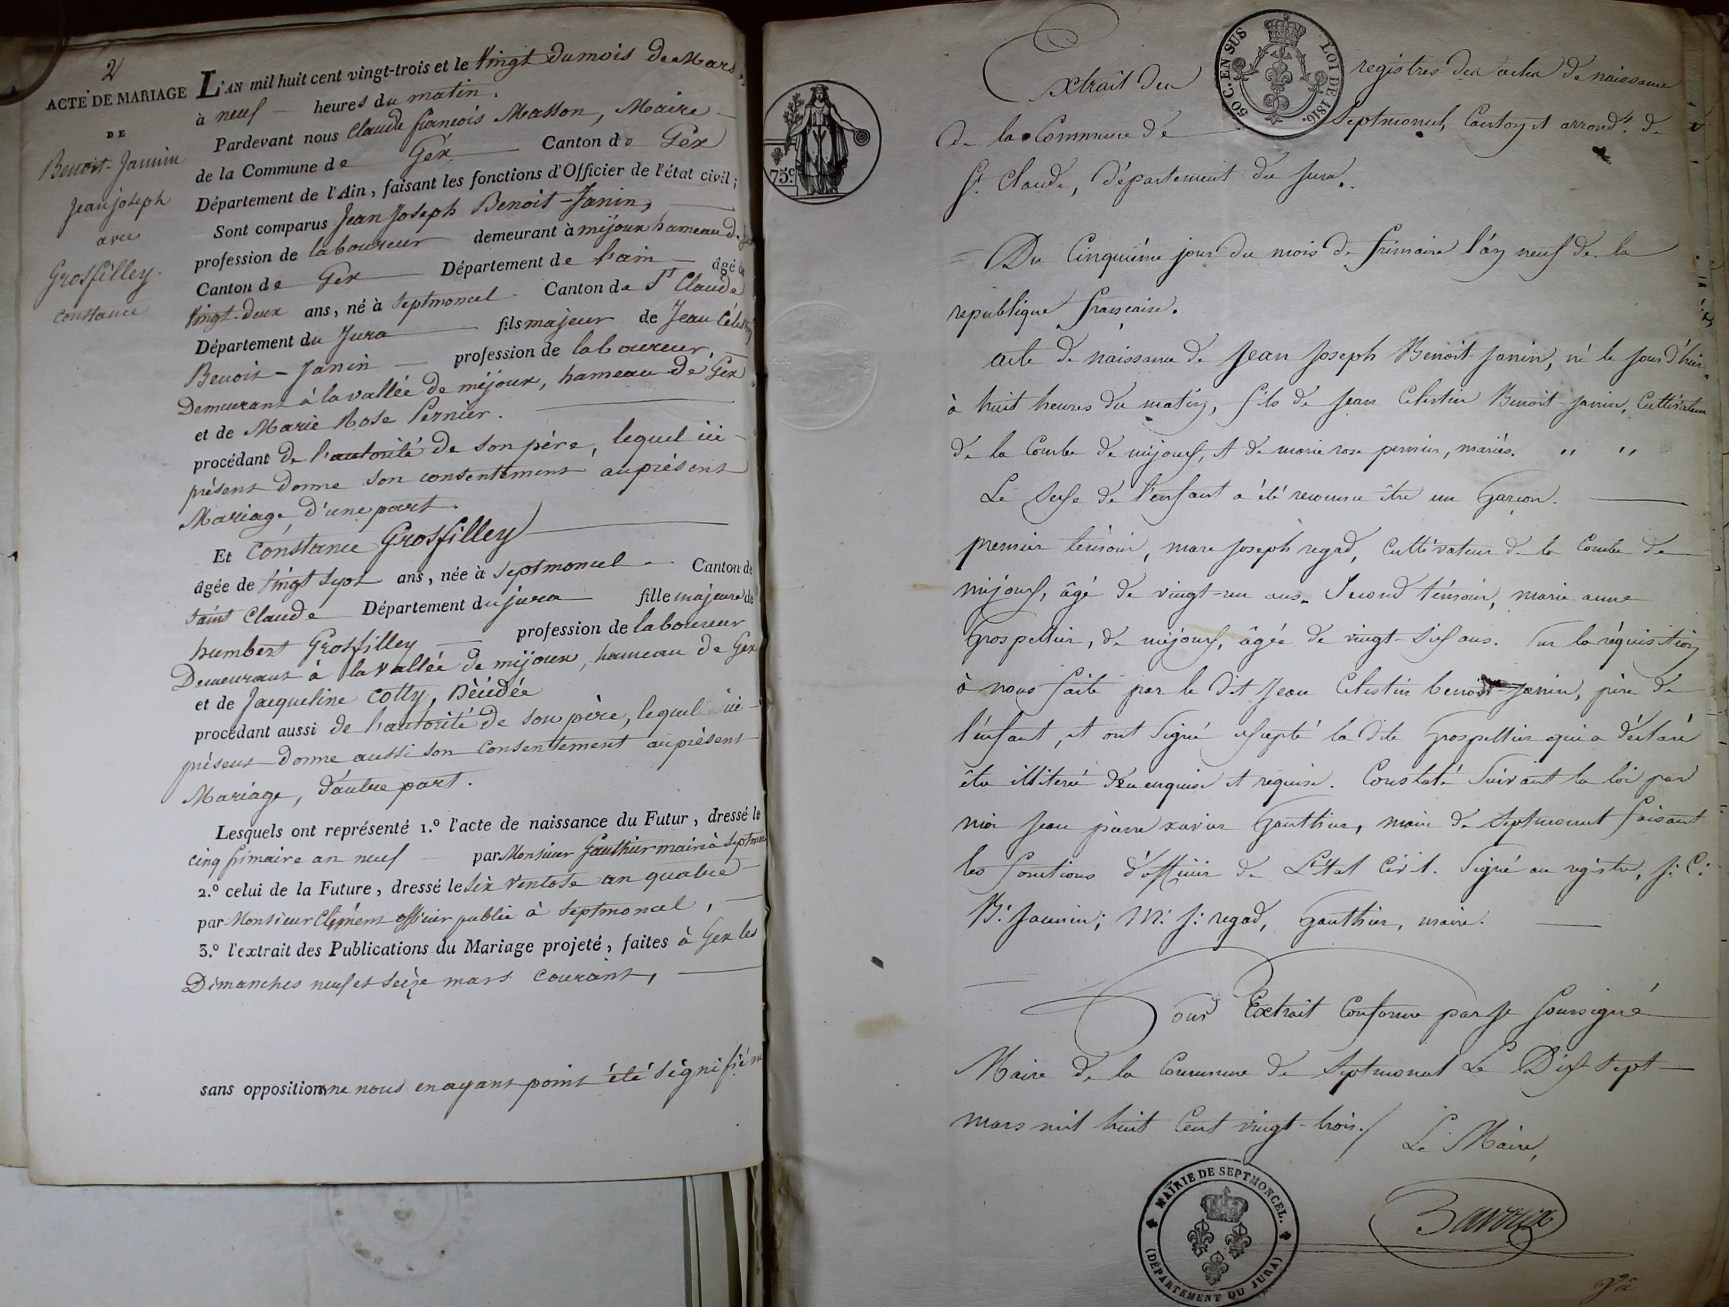 2
ACTE DE MARIAGE
DE
Benoit-Janin
Jean joseph
avec
Grosfilley
Constance
L'AN mil huit cent vingt-trois et le vingt du mois de Mars,
à neuf heures du matin.
Pardevant nous Claude françois Masson, Maire
de la Commune de Gex Canton de Gex
Département de l'Ain, faisant les fonctions d'Officier de l'état civil;
Sont comparus Jean Joseph Benoit-Janin,
profession de laboureur demeurant à mijoux hameau de
Canton de Gex Département de l'ain âgé de
vingt-deux ans, né à Septmoncel Canton de St Claude
Département du Jura fils majeur de Jean Célestin
Benoit-Janin profession de laboureur,
Demeurant à la vallée de mijoux, hameau de Gex
et de Marie Rose Pernier.
procédant de l'autorité de son père, lequel ici
présent donne son consentement au présent
Mariage, d'une part.
Et Constance Grosfilley
âgée de vingt sept ans, née à Septmoncel Canton de
saint Claude Département du jura fille majeure de
humbert Grosfilley profession de laboureur
Demeurant à la vallée de mijoux, hameau de Gex
et de Jacqueline Cotty, Décédée
procédant aussi de l'autorité de son père, lequel ici
présent donne aussi son consentement au présent
Mariage, d'autre part.
Lesquels ont représenté 1.º l'acte de naissance du Futur, dressé le
cinq frimaire an neuf par Monsieur Gauthier maire à Septmoncel
2.º celui de la Future, dressé le six ventose an quatre
par Monsieur Clément officier public à Septmoncel,
3.º l'extrait des Publications du Mariage projeté, faites à Gex les
Dimanches neuf et seize mars courant,
sans opposition, ne nous en ayant point été signifié
75c
50 C. EN SUS
LOI DE 1816
Extrait des registres des actes de naissance
de la Commune de Septmoncel, Canton et arrondt. de
St. Claude, département du Jura.
Du Cinquième jour du mois de frimaire l'an neuf de la
république française.
acte de naissance de Jean Joseph Benoit-Janin, né le jour d'hier
à huit heures du matin, fils de Jean Celestin Benoit-Janin, Cultivateur
de la Combe de mijoux, et de marie rose pernier, mariés. " "
Le Sexe de l'enfant a été reconnu être un Garçon.
premier témoin, marc Joseph regad, Cultivateur de la Combe de
mijoux, âgé de vingt-un ans. Second témoin, marie anne
Grospellier, de mijoux, âgée de vingt-six ans. Sur la réquisition
à nous faite par le dit Jean Celestin benoit-Janin, père de
l'enfant, et ont signé excepté la dite Grospellier qui a déclaré
être illiterée de ce enquise et requise. Constaté Suivant la loi par
moi Jean pierre xavier Gauthier, maire de Septmoncel faisant
les fonctions d'officier de L'Etat Civil. Signé au registre, J: C:
B: Jannin; M: J: regad, Gauthier, maire.
Pour Extrait Conforme par le Soussigné
Maire de la Commune de Septmoncel Le Dix Sept
mars mil huit Cent vingt-trois.
Le Maire,
MAIRIE DE SEPTMONCEL.
(DÉPARTEMENT DU JURA)